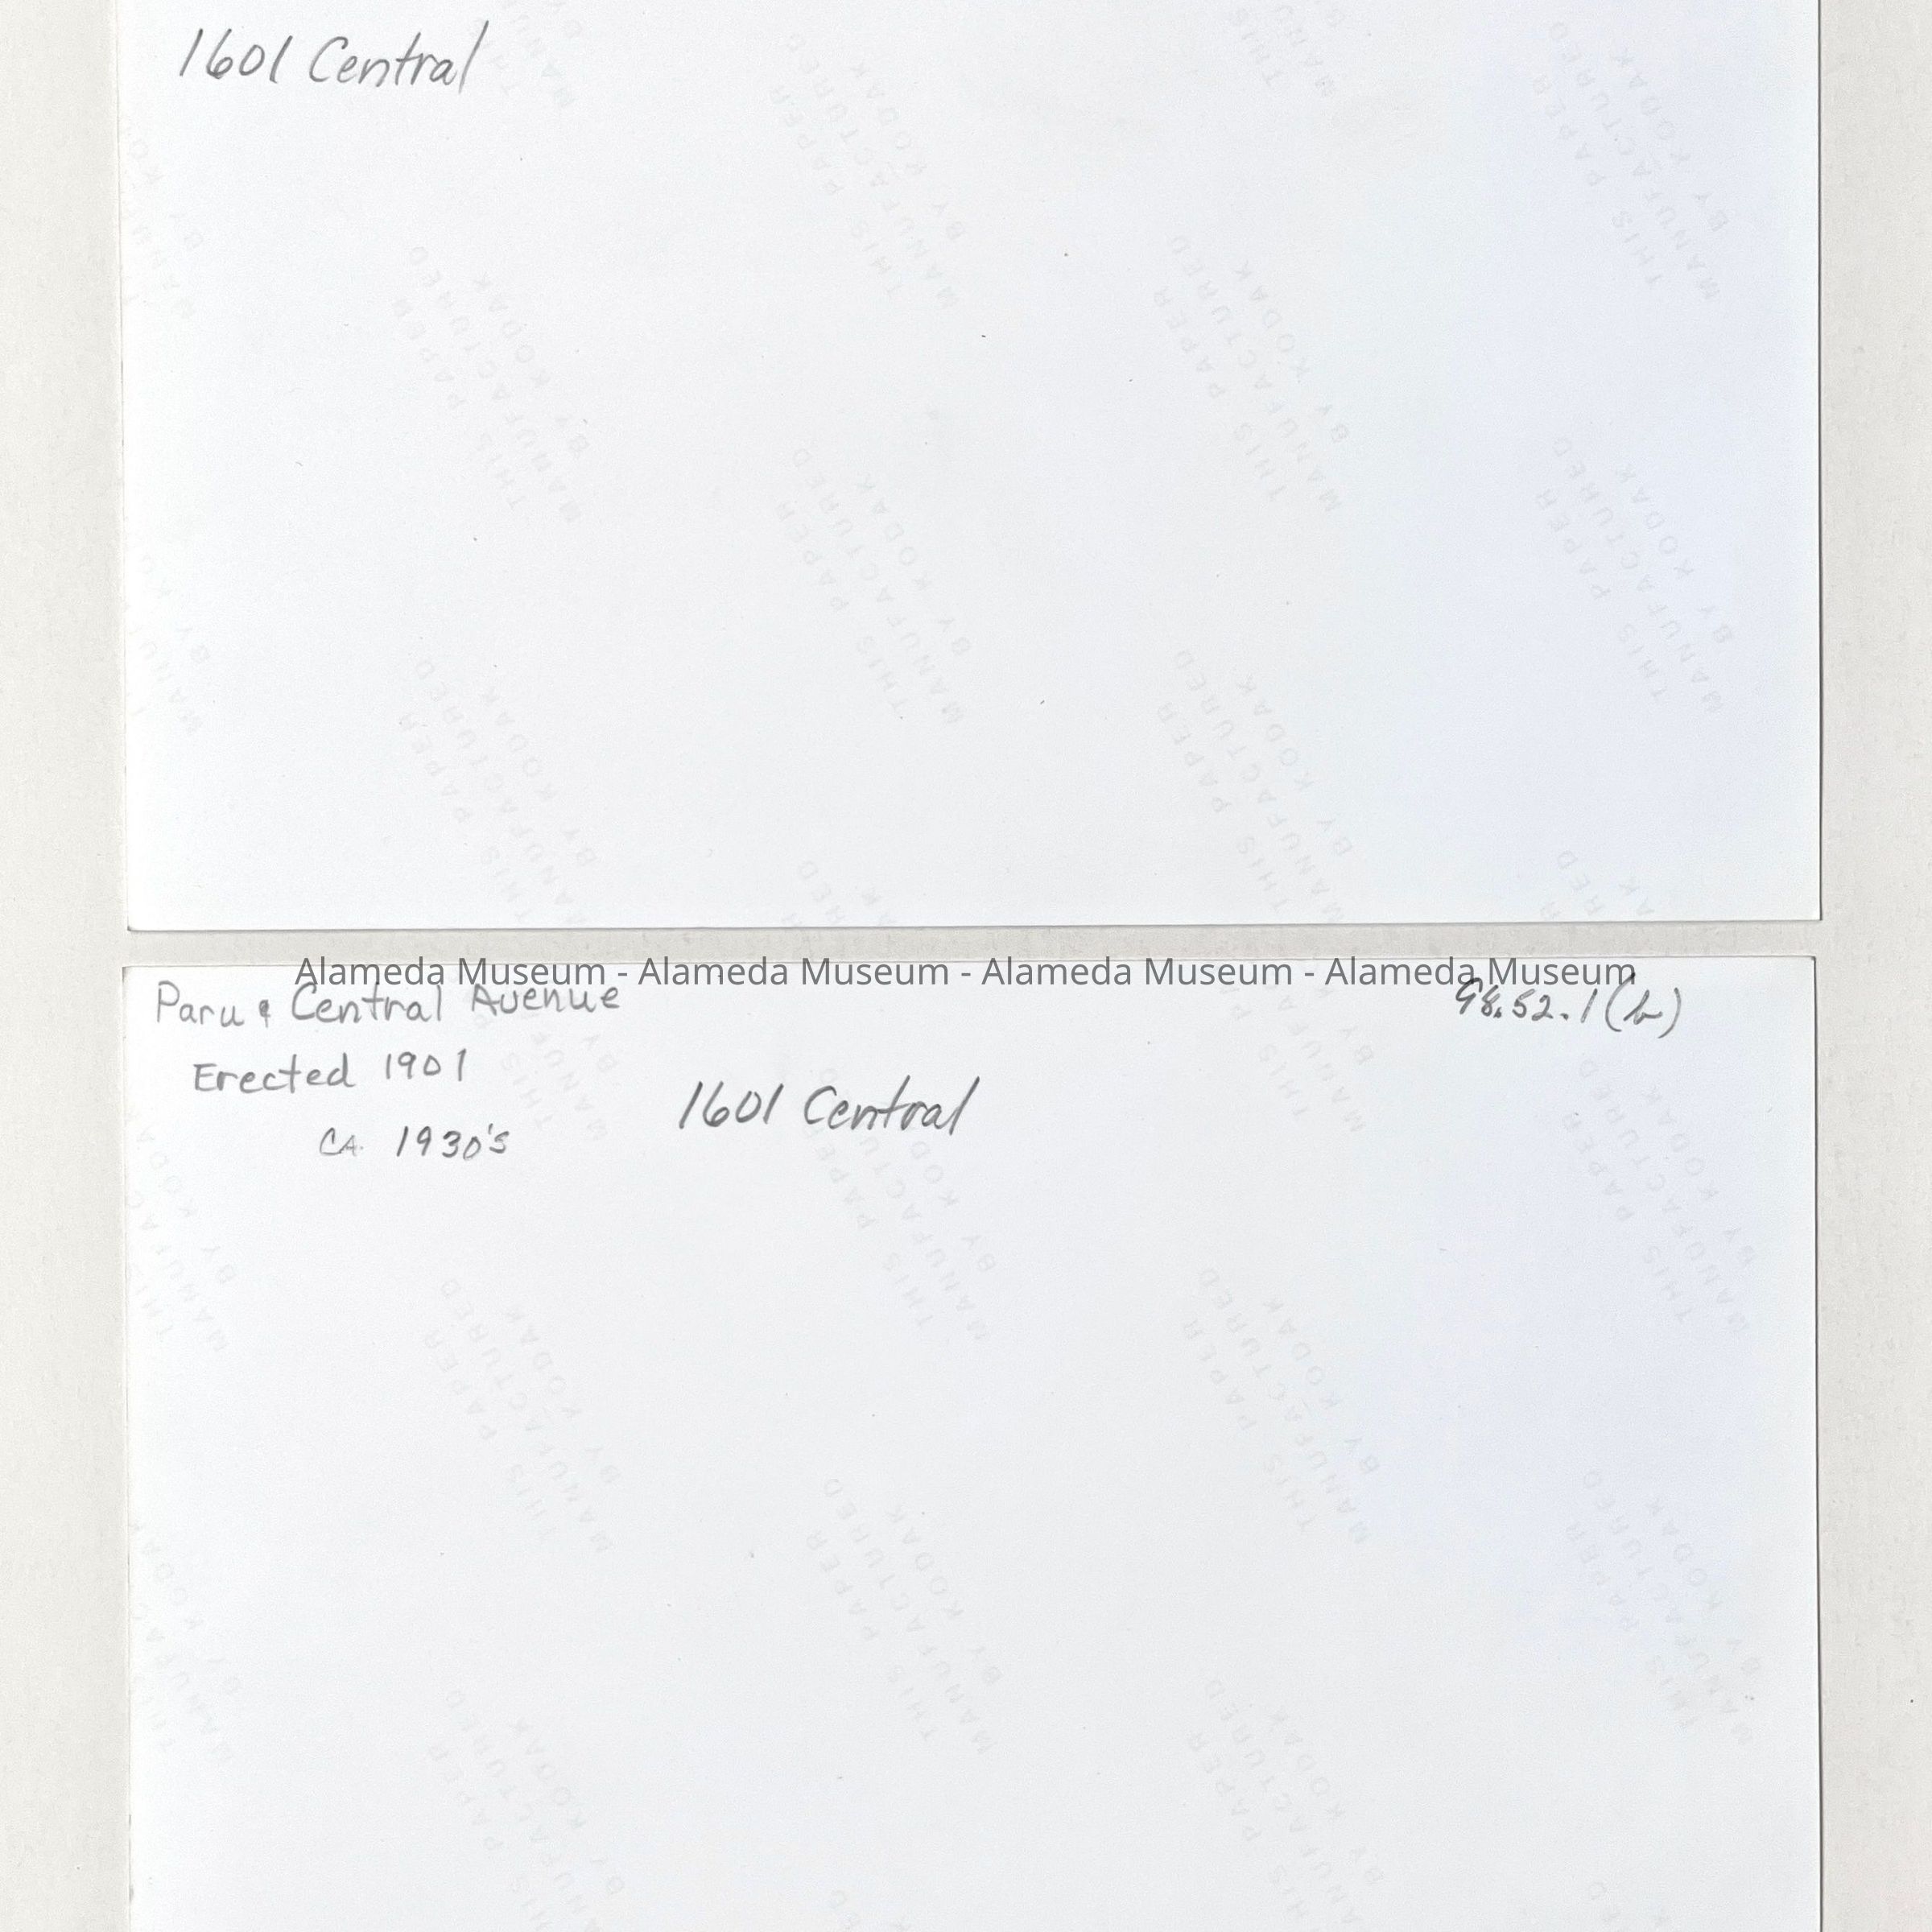 1601 Central
Alameda Museum - Alameda Museum - Alameda Museum - Alameda Museum
Paru & Central Avenue
98.52.1(b)
Erected 1901
1601 Central
CA. 1930's
THIS PAPER
MANUFACTURED
BY KODAK